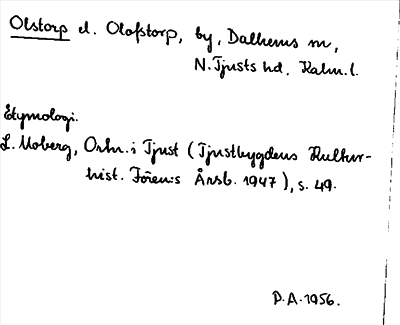 Olstorp el. Olofstorp, by, Dalhems sn,
N. Tjusts hd. Kalm. l.
Etymologi.
L. Moberg, Ortn. i Tjust (Tjustbygdens Kultur-
hist. Fören:s Årsb. 1947), s. 49.
P.A. 1956.